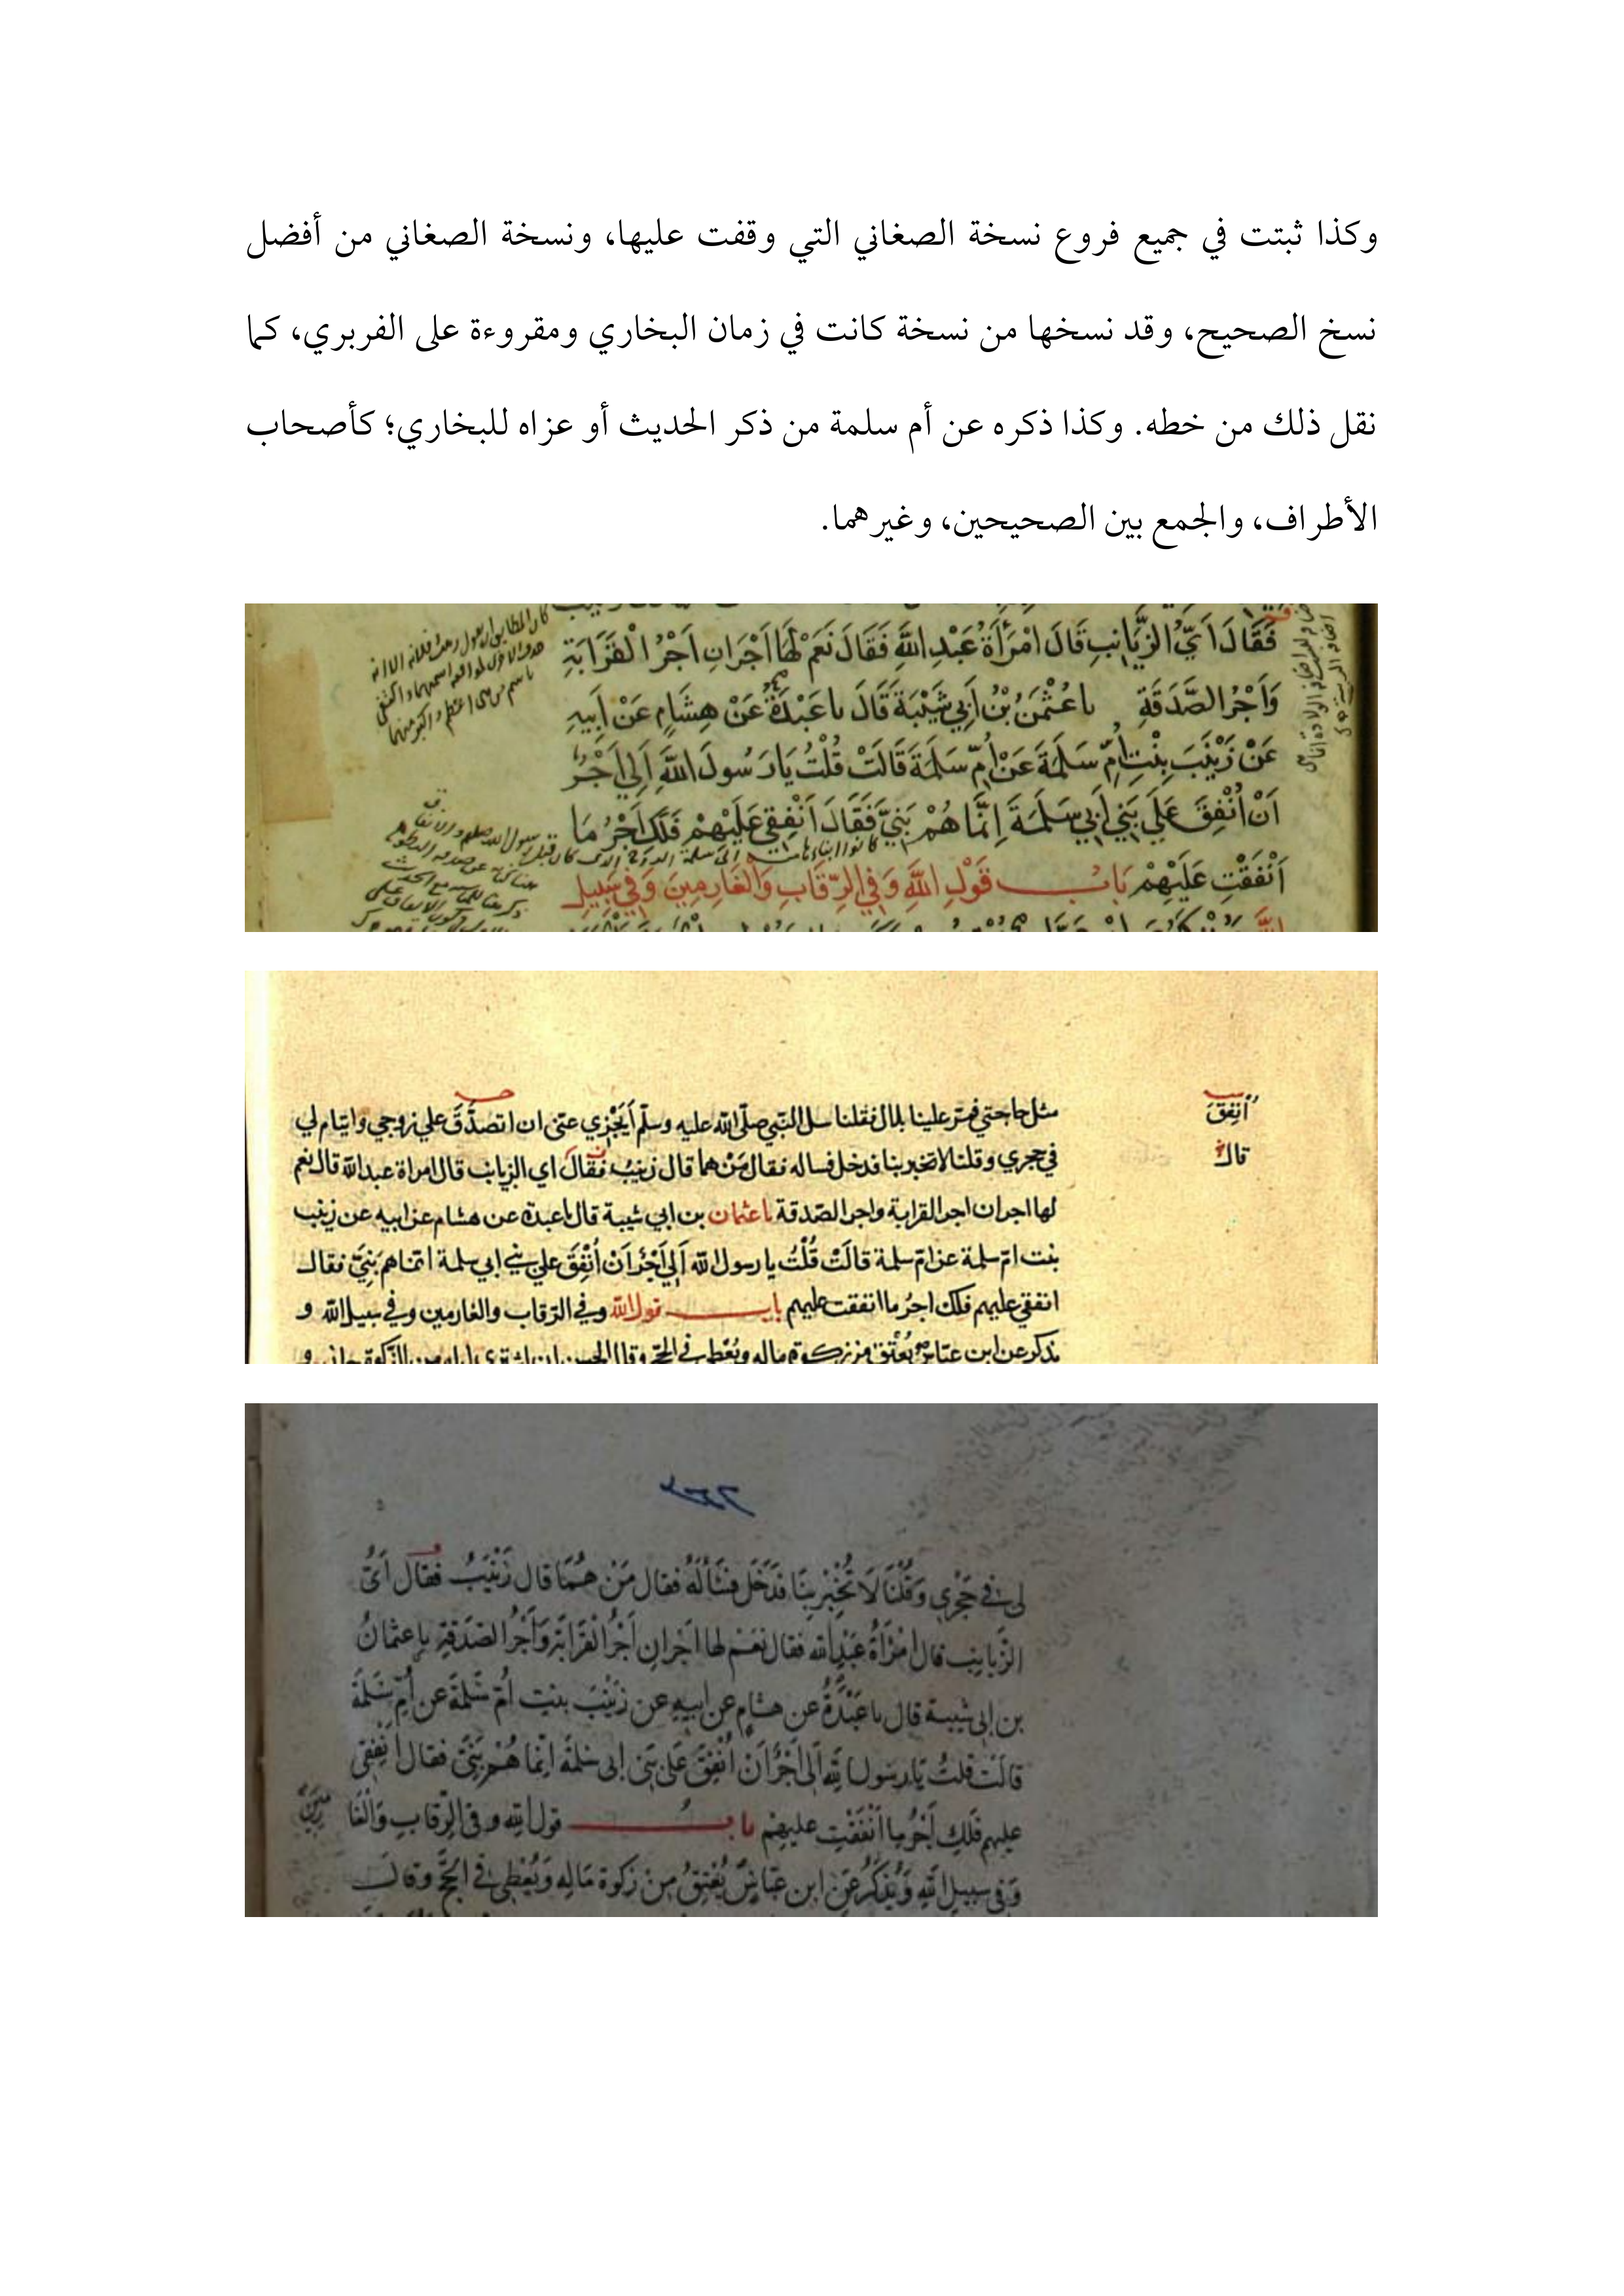 وكذا ثبتت في جميع فروع نسخة الصغاني التي وقفت عليها، ونسخة الصغاني من أفضل
نسخ الصحيح، وقد نسخها من نسخة كانت في زمان البخاري ومقروءة على الفربري، كما
نقل ذلك من خطه. وكذا ذكره عن أم سلمة من ذكر الحديث أو عزاه للبخاري؛ كأصحاب
الأطراف، والجمع بين الصحيحين، وغيرهما.
فَقَالَ اَيُّ الزَّيَانِبِ قَالَ امْرَأَةُ عَبْدِ اللَّهِ فَقَالَ نَعَمْ لَهَا اَجْرَانِ اَجْرُ الْقَرَابَةِ
وَاَجْرُ الصَّدَقَةِ نا عُثْمٰنُ بْنُ اَبِي شَيْبَةَ قَالَ نا عَبْدَةُ عَنْ هِشَامٍ عَنْ اَبِيهِ
عَنْ زَيْنَبَ بِنْتِ اُمِّ سَلَمَةَ عَنْ اُمِّ سَلَمَةَ قَالَتْ قُلْتُ يَا رَسُولَ اللَّهِ اَلِي اَجْرٌ
اَنْ اُنْفِقَ عَلَي بَنِي اَبِي سَلَمَةَ اِنَّمَا هُمْ بَنِيَّ فَقَالَ اَنْفِقِي عَلَيْهِمْ فَلَكِ اَجْرُ مَا
اَنْفَقْتِ عَلَيْهِمْ بَابُ قَوْلِ اللَّهِ وَفِي الرِّقَابِ وَالْغَارِمِينَ وَفِي سَبِيلِ
مثل حاجتي فمر علينا بلال فقلنا سل النبي صلى الله عليه وسلم أيَجْزِي عني ان اتصدَّقَ علي زوجي وايتام لي
أُنْفِقَ
في حجري وقلنا لا تخبر بنا فدخل فساله فقال مَنْ هما قال زينبُ فقالَ اي الزيانب قال امراة عبد الله قال نعم
قال
لها اجران اجر القرابة واجر الصّدقة نا عثمان بن ابي شيبة قال نا عبدة عن هشام عن ابيه عن زينب
بنت امّ سلمة عن امّ سلمة قَالَتْ قُلْتُ يا رسول الله اَلِي اَجْرٌ اَنْ اُنْفِقَ علي بني ابي سلمة انما هم بَنِيَّ فقال
انفقي عليهم فلك اجرُ ما انفقت عليهم باب قول الله وفي الرّقاب والغارمين وفي سبيل الله و
يذكر عن ابن عباس يُعْتِق من زكوة ماله ويُعْطِي في الحج وقال الحسن ان اشتري اباه من الزّكوة جاز و
لي في حَجْرِي وَقُلْنَا لَا تُخْبِرْ بِنَا فَدَخَلَ فَسَأَلَهُ فقال مَنْ هُمَا قال زَيْنَبُ فقال اَيُّ
الزَّيَانِبِ قال امْرَأَةُ عَبْدِ الله فقال نَعَمْ لها اَجْرانِ اَجْرُ الْقَرَابَةِ وَاَجْرُ الصَّدَقَةِ نا عثمانُ
بن ابي شيبة قال نا عَبْدَةُ عن هشام عن ابيه عن زَيْنَبَ بنت اُمّ سَلمَةَ عن اُمِّ سَلَمَةَ
قالَتْ قلتُ يَا رسول الله اَلِي اَجْرٌ اَنْ اُنْفِقَ عَلَى بَنِي ابي سَلمَةَ اِنما هُمْ بَنِيَّ فقال اَنْفِقِي
عليهم فَلَكِ اَجْرُ ما اَنْفَقْتِ عليهِمْ بابُ قول الله وفي الرّقابِ وَالْغَا
رِمِينَ
وَفي سبيل الله وَيُذْكَرُ عَنِ ابن عبَّاسٍ يُعْتِقُ مِنْ زكوة مَالِهِ وَيُعْطِي في الحَجّ وقالَ